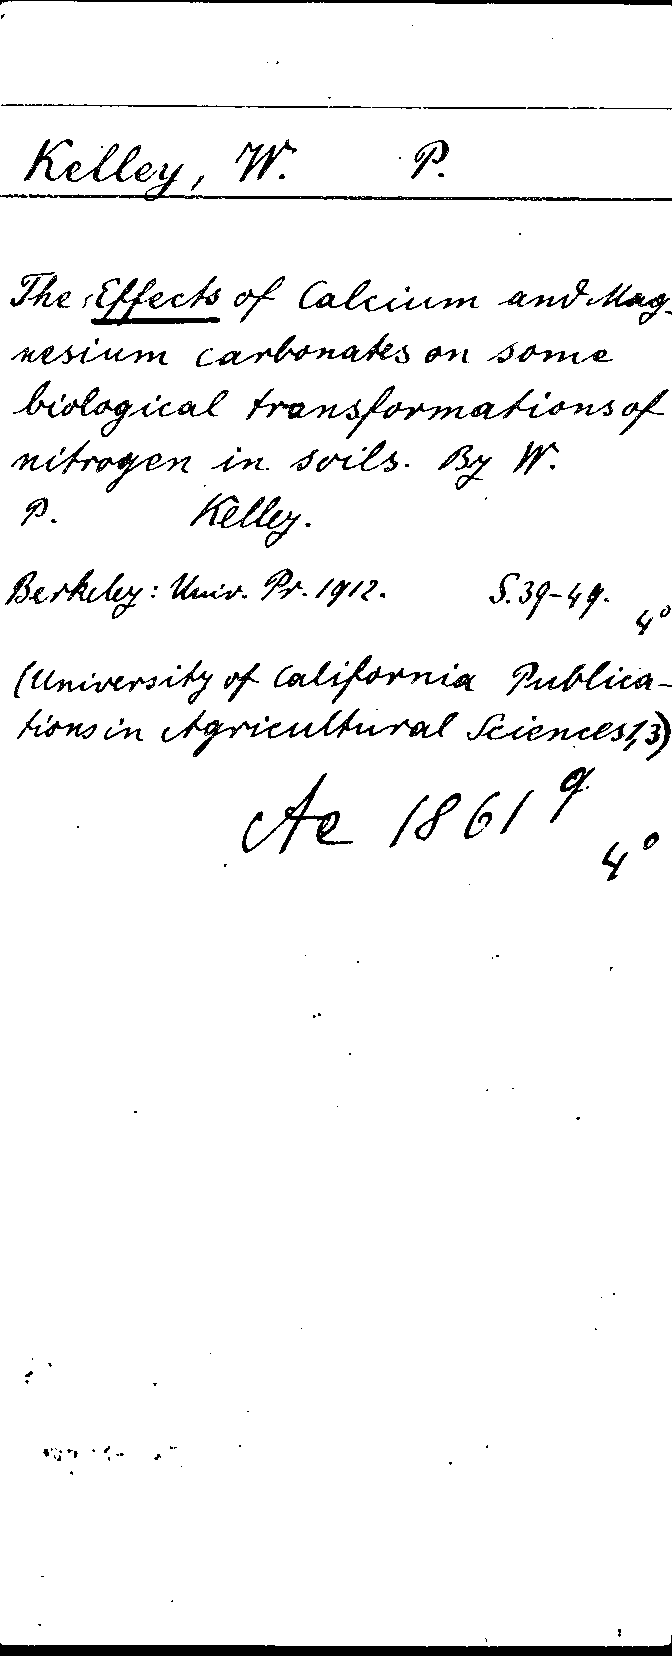 Kelley, W. P.
The Effects of Calcium and Mag-
nesium carbonates on some
biological transformations of
nitrogen in soils. By W.
P. Kelley.
Berkeley: Univ. Pr. 1912. S. 39-49. 4°
(University of California Publica-
tions in Agricultural Sciences 1,3)
Ae 1861 q
4°